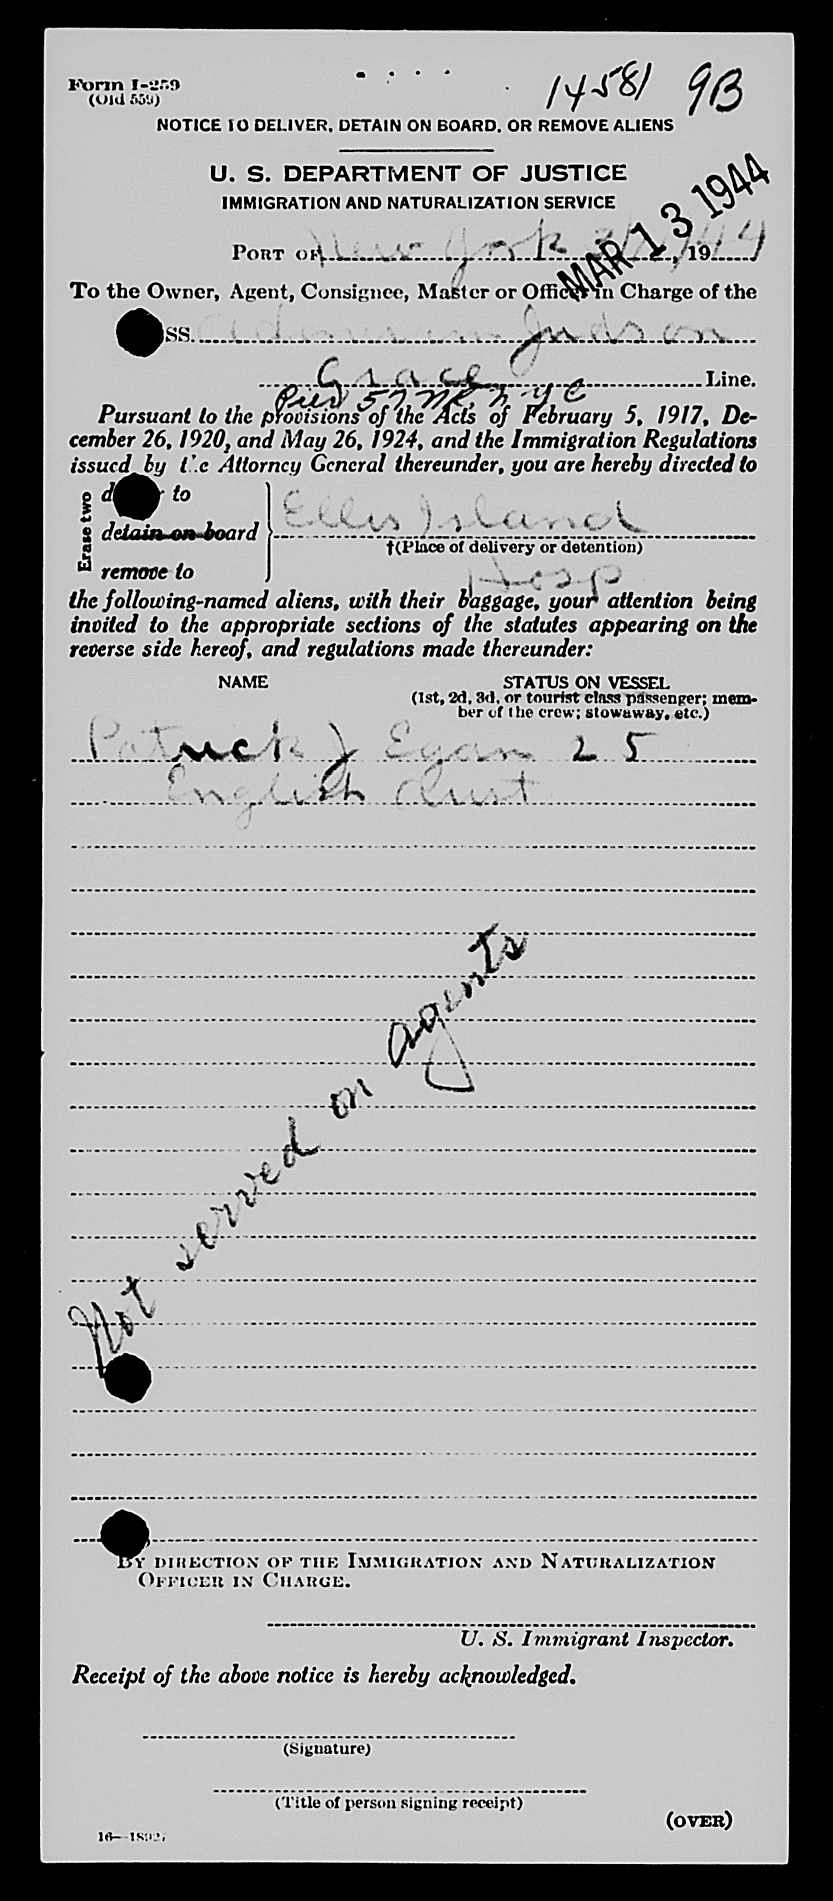 Form I-259
(Old 559)
14581 9B
NOTICE TO DELIVER, DETAIN ON BOARD, OR REMOVE ALIENS
U. S. DEPARTMENT OF JUSTICE
IMMIGRATION AND NATURALIZATION SERVICE
MAR 13 1944
PORT OF New York 3/12, 1944
To the Owner, Agent, Consignee, Master or Officer in Charge of the
SS. Adoniram Judson
Grace Line.
Pier 57 NR, N.Y.C
Pursuant to the provisions of the Acts of February 5, 1917, De-
cember 26, 1920, and May 26, 1924, and the Immigration Regulations
issued by the Attorney General thereunder, you are hereby directed to
Erase two
d to
detain on board
remove to
Ellis Island
†(Place of delivery or detention)
Hosp
the following-named aliens, with their baggage, your attention being
invited to the appropriate sections of the statutes appearing on the
reverse side hereof, and regulations made thereunder:
NAME STATUS ON VESSEL
(1st, 2d, 3d, or tourist class passenger; mem-
ber of the crew; stowaway, etc.)
Patrick J Egan 25
English
Not served on agents
BY DIRECTION OF THE IMMIGRATION AND NATURALIZATION
OFFICER IN CHARGE.
U. S. Immigrant Inspector.
Receipt of the above notice is hereby acknowledged.
(Signature)
(Title of person signing receipt)
(OVER)